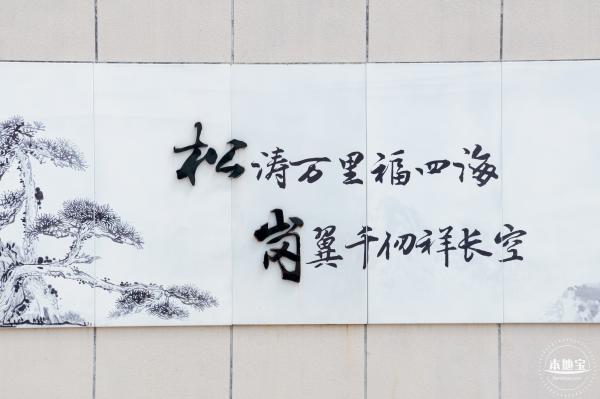 松涛万里福四海
岗翼千仞祥长空
本地宝